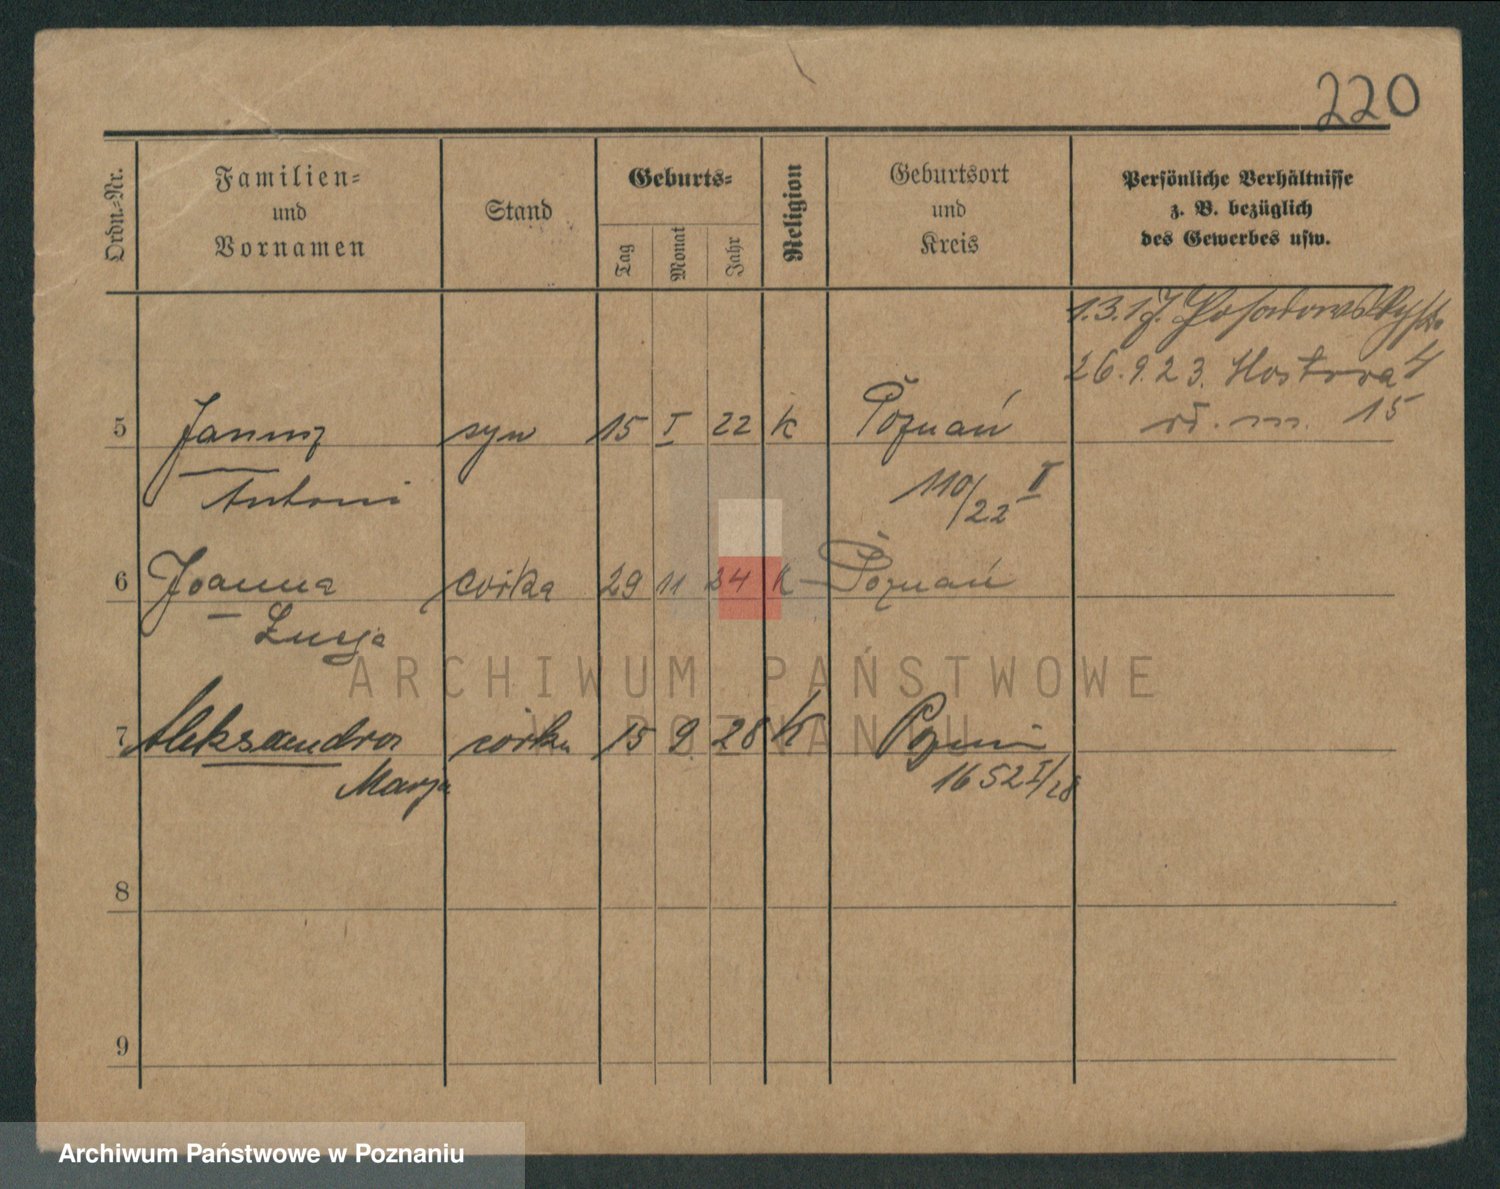 220
Ordn.-Nr.
Familien-
und
Vornamen
Stand
Geburts-
Tag
Monat
Jahr
Religion
Geburtsort
und
Kreis
Persönliche Verhältnisse
z. B. bezüglich
des Gewerbes usw.
26.9.23.
15
5 Janusz syn 15 I 22 k Poznań
Antoni 110/22 II
6 Joanna córka 29 11 24 K Poznań
Łucja
7 Aleksandra córka 15 9 28 K Poznań
Marja 1652 I/28
8
9
ARCHIWUM PAŃSTWOWE
W POZNANIU
Archiwum Państwowe w Poznaniu